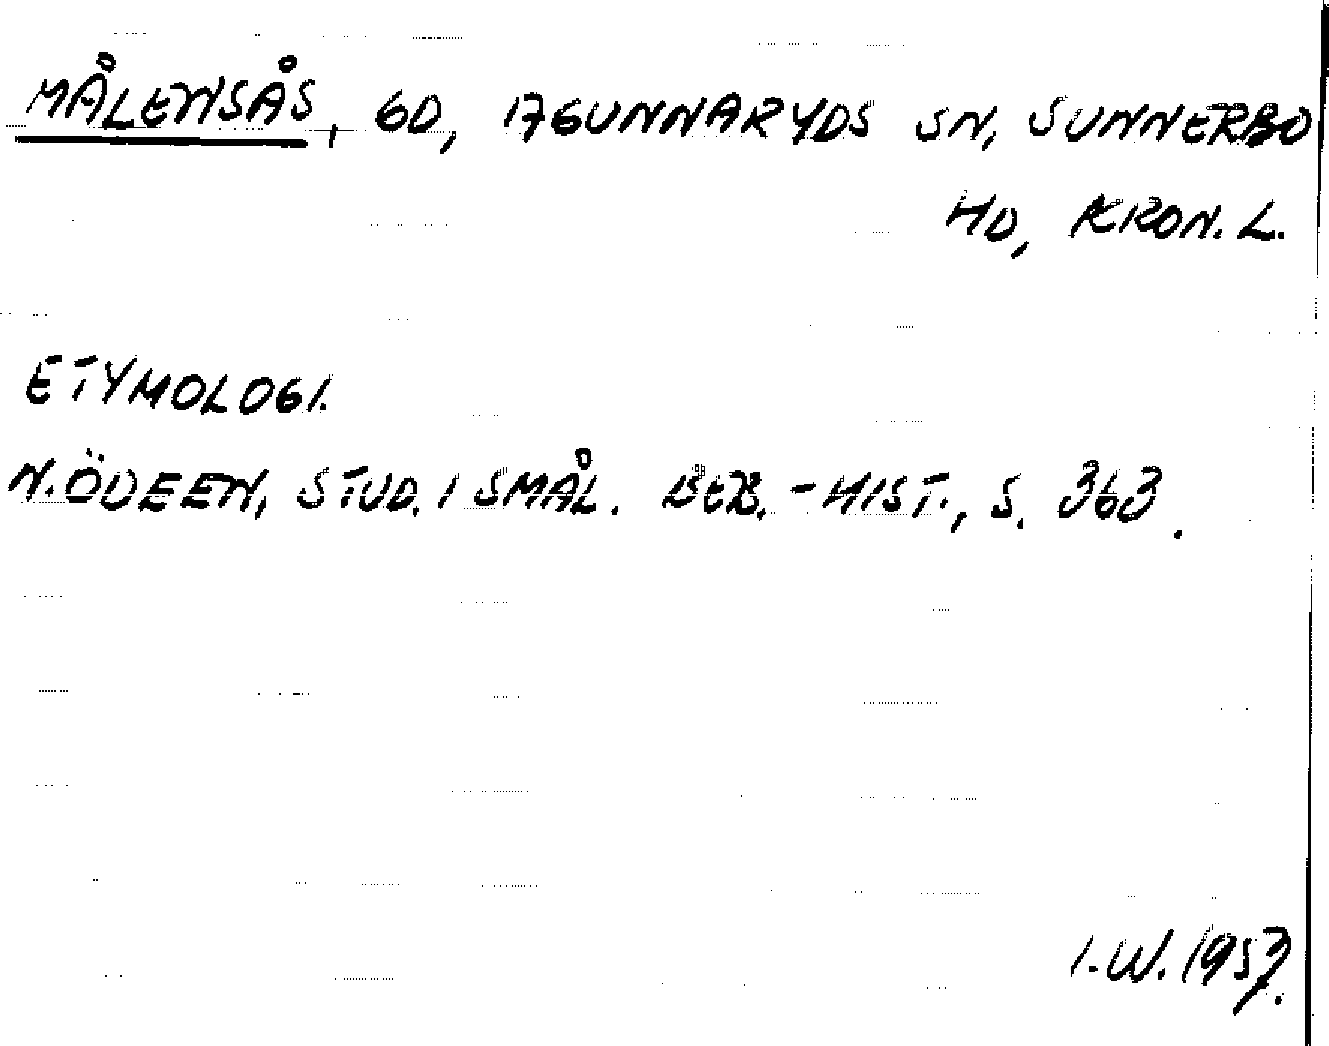 MÅLENSÅS, GD, 17 GUNNARYDS SN, SUNNERBO
HD, KRON. L.
ETYMOLOGI.
N. ÖDEEN, STUD. I SMÅL. BEB. - HIST., S. 363.
I. W. 1957.